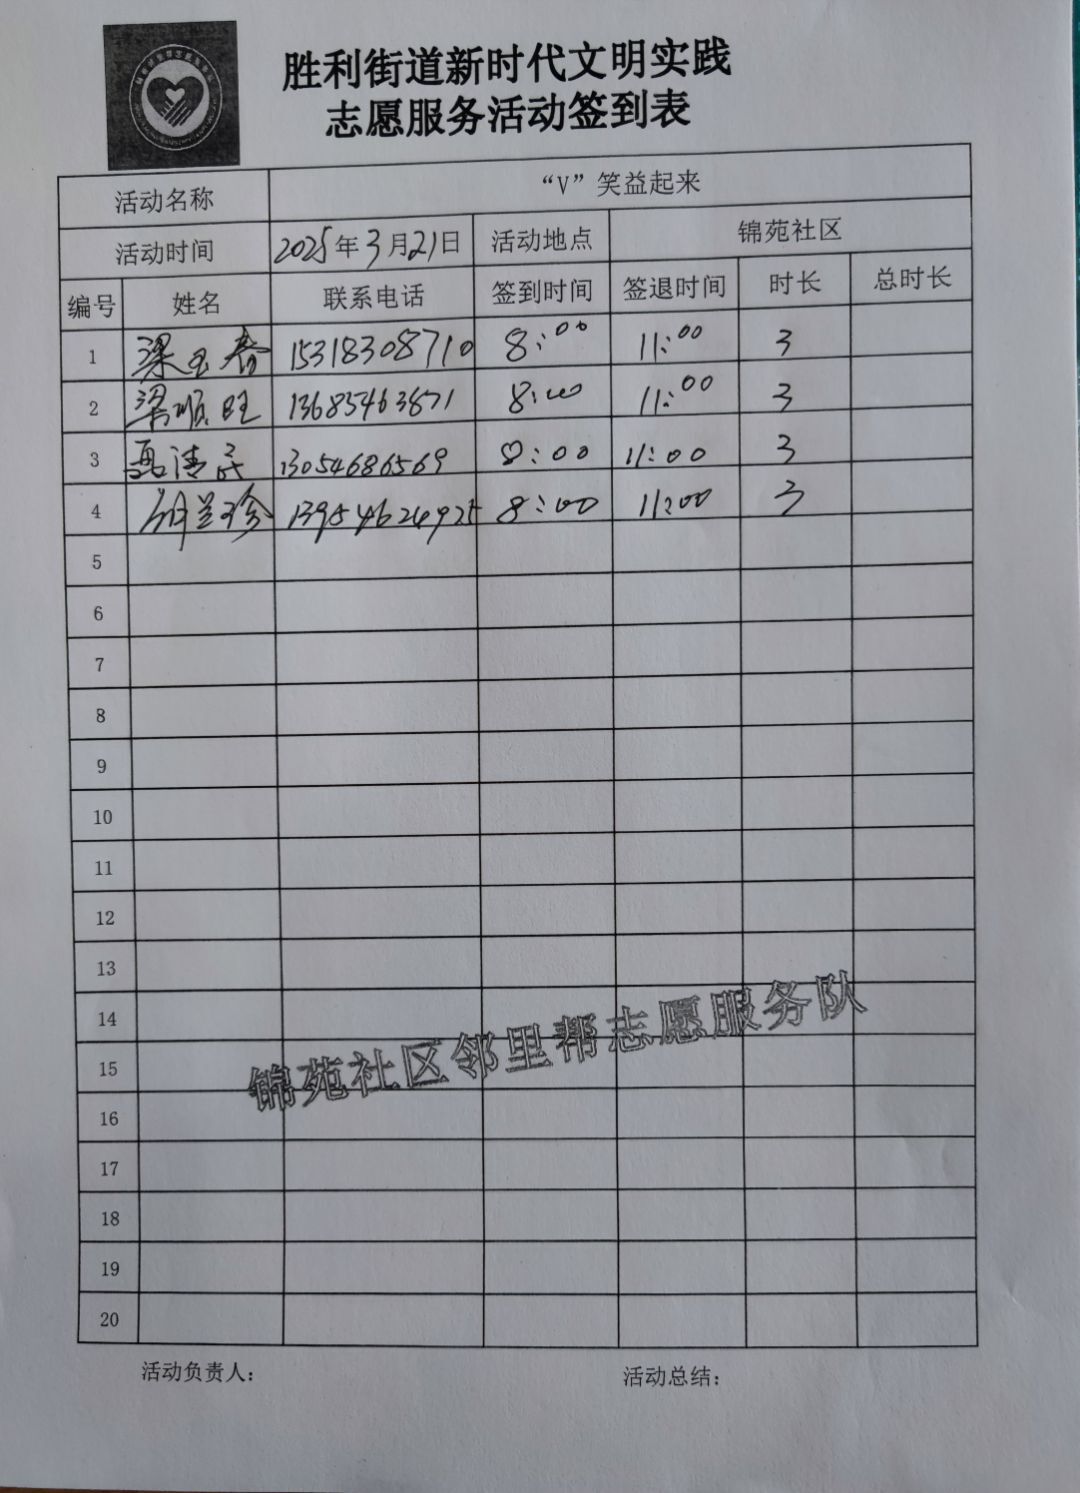 胜利街道新时代文明实践
志愿服务活动签到表
活动名称 “V”笑益起来
活动时间 2025年3月21日 活动地点 锦苑社区
编号 姓名 联系电话 签到时间 签退时间 时长 总时长
1 梁玉春 15318308710 8:00 11:00 3
2 梁顺旺 13685463871 8:00 11:00 3
3 清 13054686569 8:00 11:00 3
4 胡兰珍 13954624925 8:00 11:00 3
5
6
7
8
9
10
11
12
13
14
15
16
17
18
19
20
锦苑社区邻里帮志愿服务队
活动负责人: 活动总结: